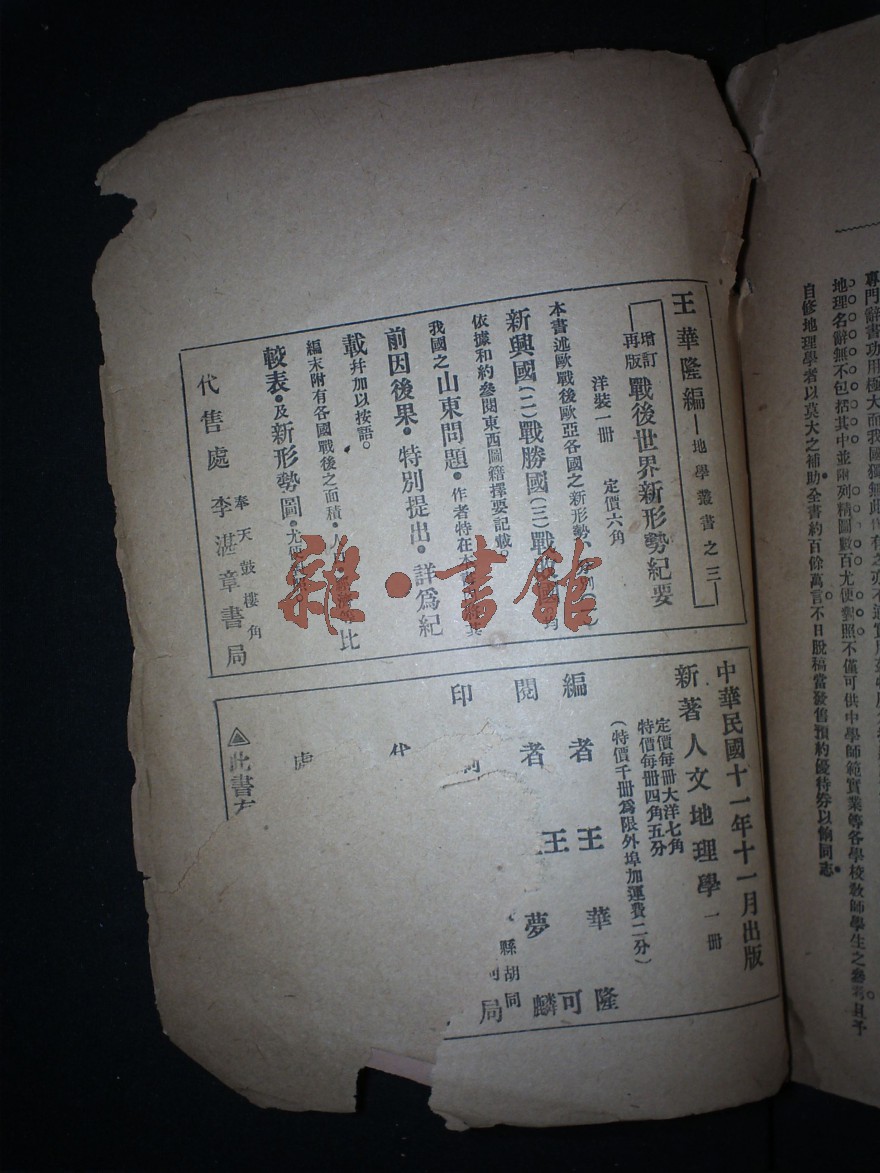 專門辭書功用極大而我國獨無此
地理名辭無不包括其中並附列精圖數百尤使對照不僅可供中學師範實業等各學校教師學生之參考且予
自修地理學者以莫大之補助全書約百餘萬言不日脫稿當發售預約優待券以餉同志
王華隆編—地學叢書之三—
增訂再版 戰後世界新形勢紀要
洋裝一册 定價六角
本書述歐戰後歐亞各國之新形勢、
新興國(二)戰勝國(三)戰
依據和約參閱東西圖籍擇要記載。
我國之山東問題・作者特在
前因後果・特別提出・詳爲紀
載幷加以按語。
編末附有各國戰後之面積・
比
較表・及新形勢圖・尤
代售處 奉天鼓樓角 李湛章書局
中華民國十一年十一月出版
新著人文地理學 一册
定價每册大洋七角
特價每册四角五分
(特價千册爲限外埠加運費二分)
編者 王華隆
王 可
閱者 夢麟
印
縣胡同
局
處
△此書有
雜・書館